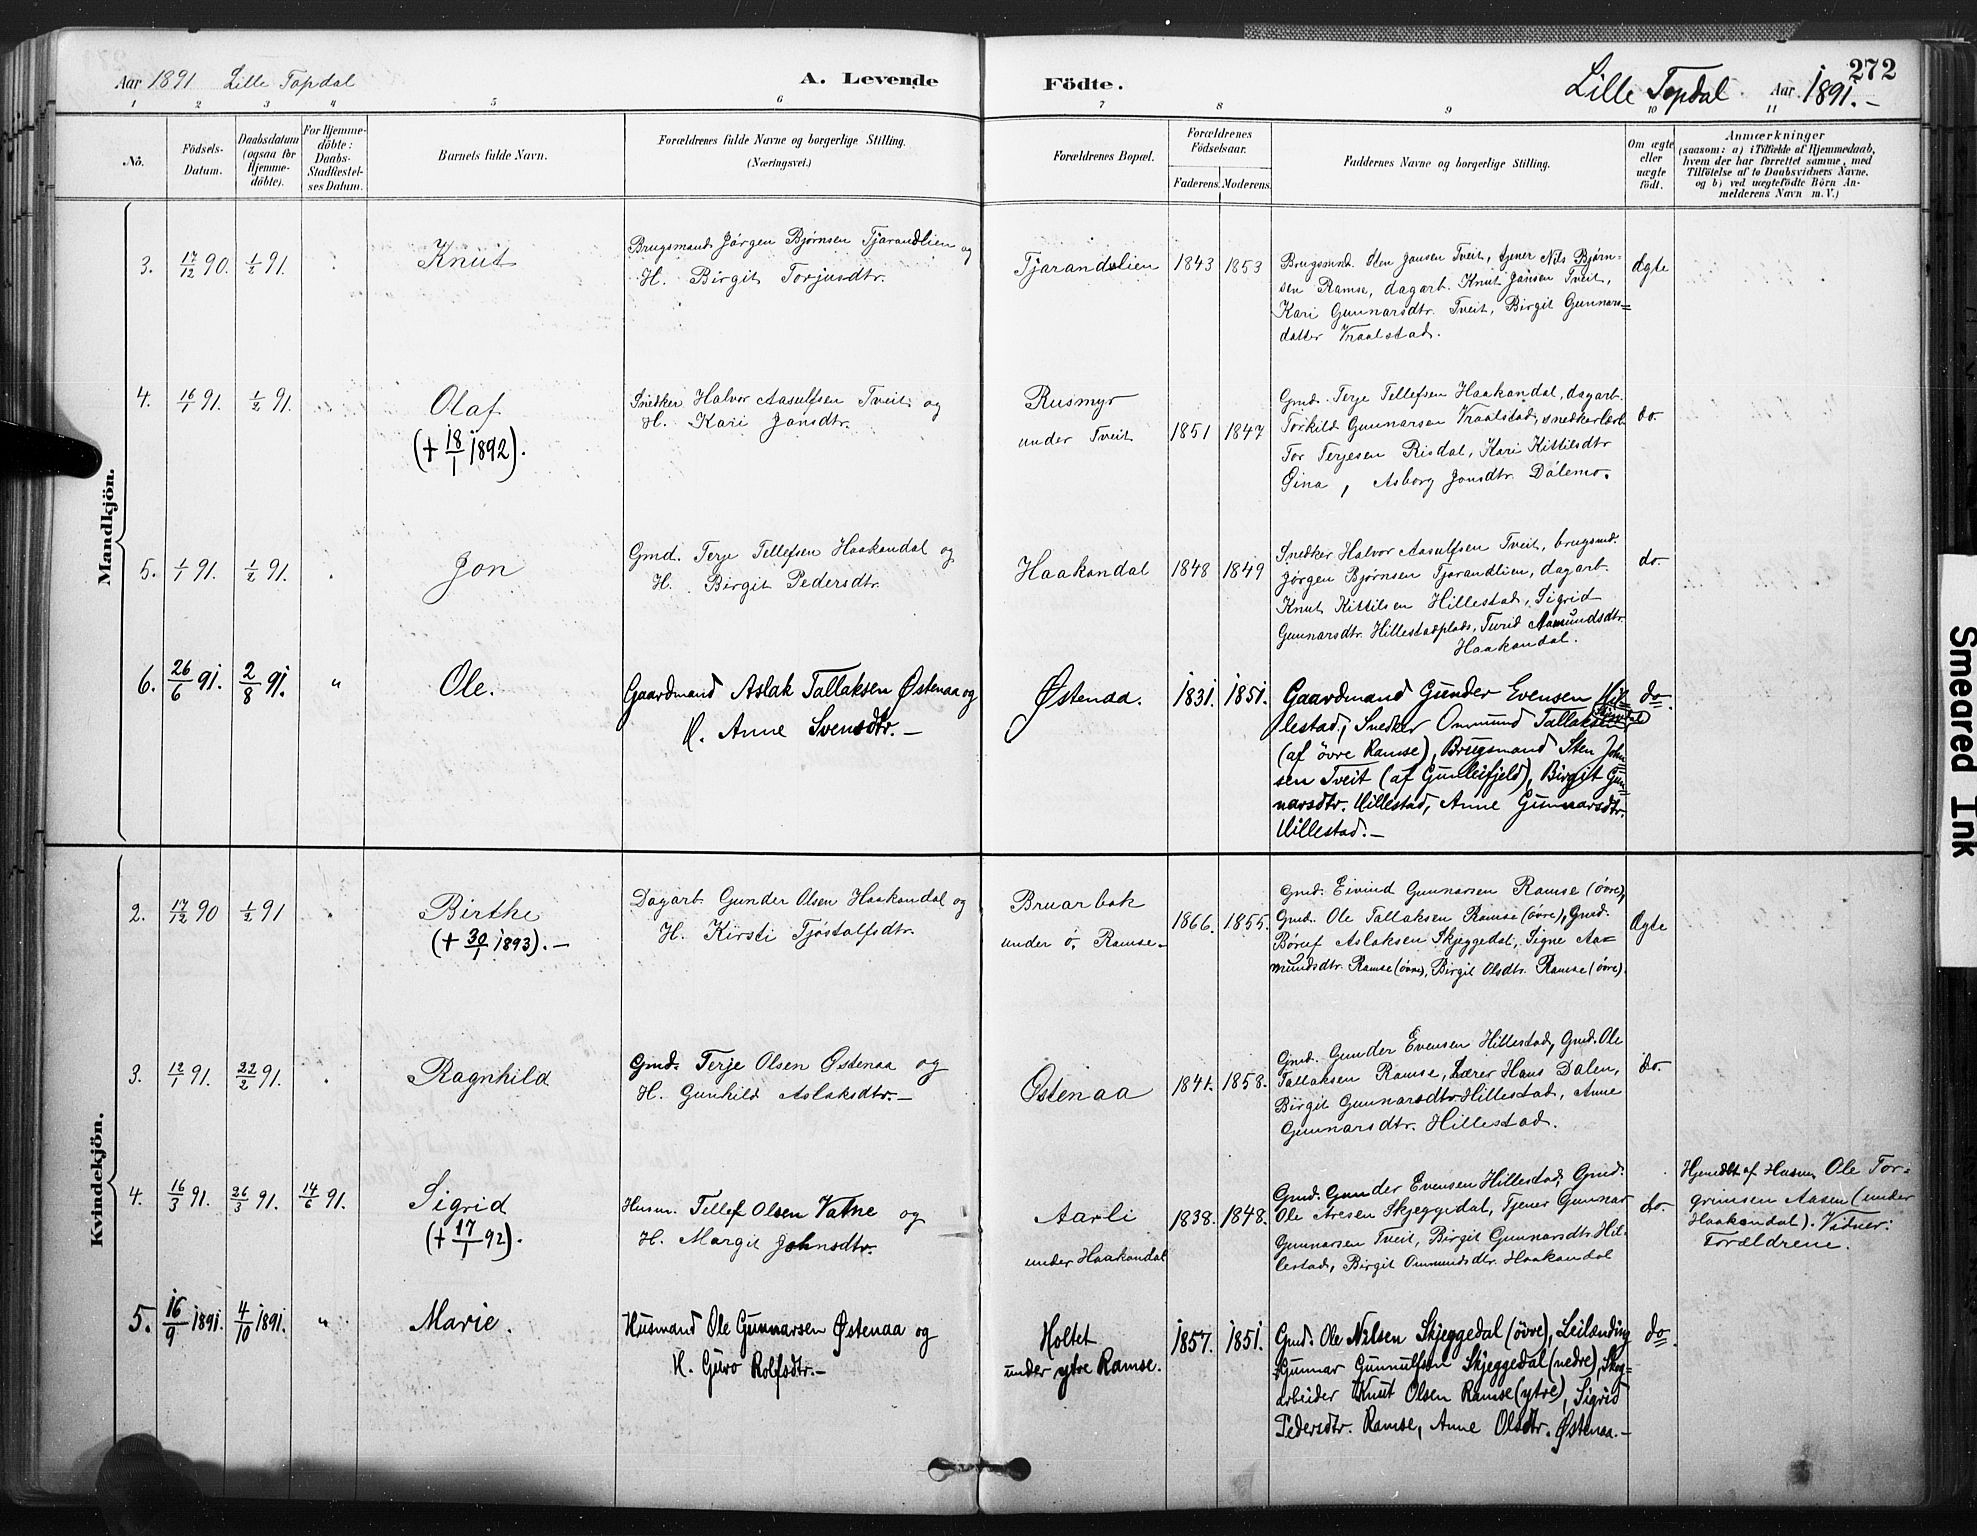 Aar 1891 Lille Topdal A. Levende Födte. Lille Topdal Aar 1891.- 272
1 2 3 4 5 6 7 8 9 10 11
No.
Födsels-Datum.
Daabsdatum (ogsaa for Hjemme-döbte).
For Hjemme-döbte: Daabs-Stadfæstel-ses Datum.
Barnets fulde Navn.
Forældrenes fulde Navne og borgerlige Stilling.
(Næringsvei.)
Forældrenes Bopæl.
Forældrenes Födselsaar.
Faderens. Moderens.
Faddernes Navne og borgerlige Stilling.
Om ægte eller uægte födt.
Anmærkninger
(saasom: a) i Tilfælde af Hjemmedaab,
hvem der har forrettet samme, med
Tilföielse af to Daabsvidners Navne.
og b) ved uægtefödte Börn An-
melderens Navn m. V.)
Mandkjön.
3. 17/12 90. 1/2 91. Knut
Brugsmand Jörgen Bjørnsen Tjarandlien og
H. Birgit Torjusdtr.
Tjarandslien 1843 1853
Brugsmnd. Sten Jonsen Tveit, tjener Nils Bjørn=
sen Ramse, dagarb. Knut Jonsen Tveit,
Kari Gunnarsdtr. Tveit, Birgit Gunnars=
datter Vraalstad.
Ægte
4. 16/1 91. 1/2 91. Olaf
(+ 18/1 1892).
Snedker Halvor Aasulfsen Tveit og
H. Kari Jonsdtr.
Rusmyr
under Tveit 1851 1847
Gmd. Terje Tellefsen Haakondal, dagarb.
Torkild Gunnarsen Vraalstad, snedkerlærl.
Tor Terjesen Risdal, Kari Kittilsdtr
Gina, Asborg Jonsdtr. Dålemo.
do.
5. 1/1 91. 1/2 91. Jon
Gmd. Terje Tellefsen Haakondal og
H. Birgit Pedersdtr.
Haakondal 1848 1849
Snedker Halvor Aasulfsen Tveit, brugsmd.
Jørgen Bjørnsen Tjarandlien, dagarb.
Knut Kittilsen Hillestad, Sigrid
Gunnarsdtr. Hillestadplads, Turid Aamundsdtr.
Haakondal.
do.
6. 26/6 91. 2/8 91. " Ole.
Gaardmand Aslak Tallaksen Østenaa og
H. Anne Svensdtr. -
Østenaa. 1831. 1851.
Gaardmand Gunder Evensen Hil-
lestad, Snedker Ommund Tallaksen
(af övre Ramse), Brugsmand Sten John=
sen Tveit (af Gunleifjeld), Birgit Gun=
narsdtr. Hillestad, Anne Gunnarsdtr.
Hillestad. -
do.
Kvindekjön.
2. 17/12 90 1/2 91 Birthe
(+ 30/1 1893). -
Dagarb Gunder Olsen Haakondal og
H. Kirsti Tjøstolfsdtr.
Bruarbak
under ö. Ramse. 1866. 1855.
Gmd. Eivind Gunnarsen Ramse (övre),
Gmd. Ole Tallaksen Ramse (övre), Gmd.
Böruf Aslaksen Skjeggedal, Signe Aa=
mundsdtr. Ramse (övre), Birgit Olsdtr. Ramse (övre).
Ægte
3. 12/1 91. 22/2 91. Ragnhild
Gmd. Terje Olsen Østenaa og
H. Gunhild Aslaksdtr. -
Østenaa 1841. 1858.
Gmd. Gunder Evensen Hillestad, Gmd. Ole
Tallaksen Ramse, Lærer Hans Dalen,
Birgit Gunnarsdtr Hillestad, Anne
Gunnarsdtr. Hillestad.
do.
4. 16/3 91. 26/3 91. 14/6 91. Sigrid
(+ 17/1 92).
Husm. Tellef Olsen Vatne og
H. Margit Johnsdtr.
Aarli
under Haakondal 1838. 1848.
Gmd. Gunder Evensen Hillestad, Gmd.
Ole Aresen Skjeggedal, Tjener Gunnar
Gunnarsen Tveit, Birgit Gunnarsdtr. Hil-
lestad, Birgit Ommundsdtr. Haakondal
do.
Hjemdbt af Husm. Ole Tor=
grimsen Aasen (under
Haakondal). Vidner:
Forældrene.
5. 16/9 1891. 4/10 1891. " Marie.
Husmand Ole Gunnarsen Østenaa og
H. Guro Rolfsdtr. -
Holtet
under ytre Ramse. 1857. 1851.
Gmd. Ole Nilsen Skjeggedal (övre), Leilænding
Gunnar Gunnulfsen Skjeggedal (nedre), Skog=
arbeider Knut Olsen Ramse (ytre), Sigrid
Pedersdtr. Ramse, Anne Olsdtr. Østenaa. -
do.
Smeared Ink